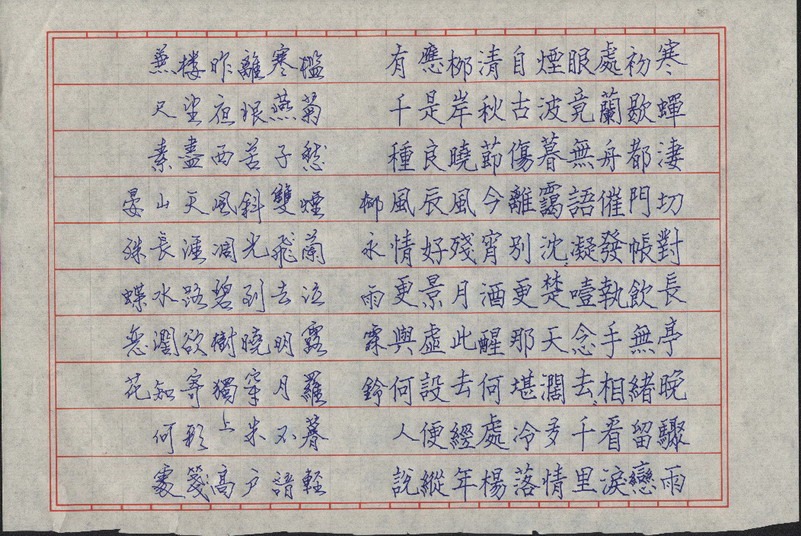 寒蟬淒切對長亭晚驟雨
初歇都門帳飲無緒留戀
處蘭舟催發執手相看淚
眼竟無語凝噎念去、千里
煙波暮靄沈、楚天濶多情
自古傷離別更那堪冷落
清秋節今宵酒醒何處楊
柳岸曉風殘月此去經年
應是良辰好景虛設便縱
有千種風情更與何人說
柳永雨霖鈴
檻菊愁煙蘭泣露羅暮輕
寒燕子雙飛去明月不諳
離恨苦斜光到曉穿朱戶
昨夜西風凋碧樹獨上高
楼望盡天涯路欲寄彩箋
兼尺素山長水濶知何處
晏殊蝶恋花